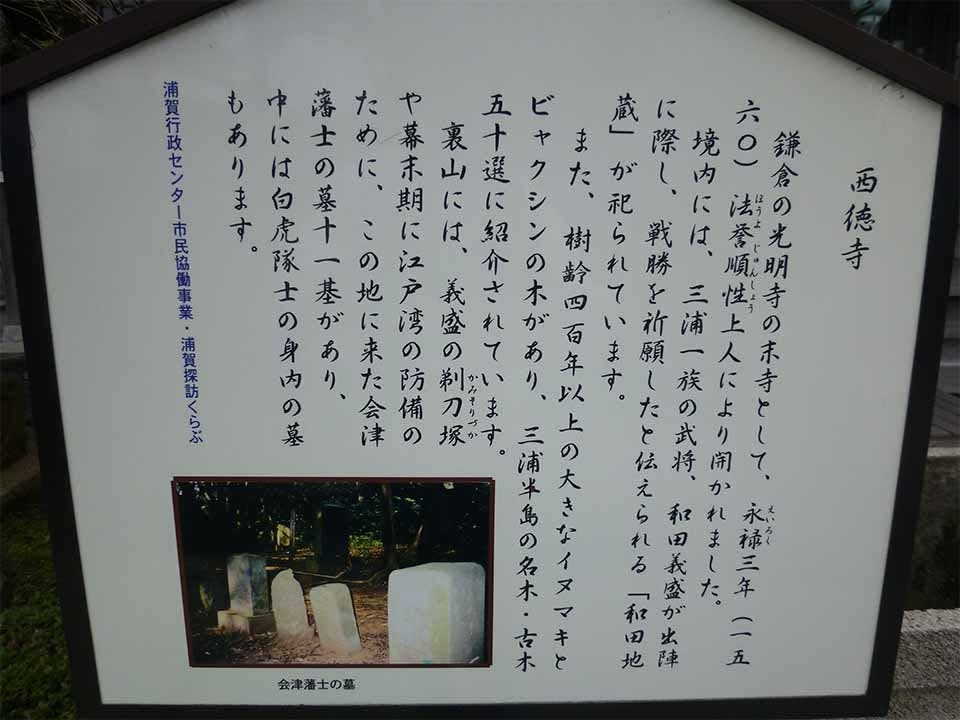 西徳寺
鎌倉の光明寺の末寺として、永禄三年(一五
えいろく
六〇)法誉順性上人により開かれました。
ほうよ じゅんしょう
境内には、三浦一族の武将、和田義盛が出陣
に際し、戦勝を祈願したと伝えられる「和田地
蔵」が祀られています。
また、樹齢四百年以上の大きなイヌマキと
ビャクシンの木があり、三浦半島の名木・古木
五十選に紹介されています。
裏山には、義盛の剃刀塚
かみそりづか
や幕末期に江戸湾の防備の
ために、この地に来た会津
藩士の墓十一基があり、
中には白虎隊士の身内の墓
もあります。
浦賀行政センター市民協働事業・浦賀探訪くらぶ
会津藩士の墓